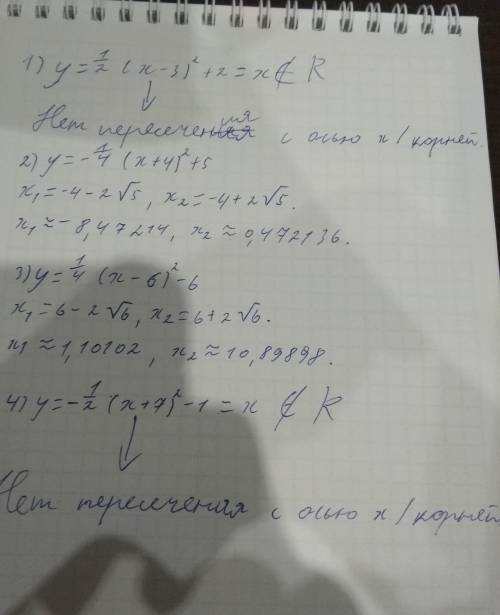 1) y = 1/2 (x-3)² + 2 = x ∉ R
Нет пересечения с осью x / корней.
2) y = -1/4 (x+4)² + 5
x₁ = -4 - 2√5, x₂ = -4 + 2√5.
x₁ ≈ -8,47214, x₂ ≈ 0,472136.
3) y = 1/4 (x - 6)² - 6
x₁ = 6 - 2√6, x₂ = 6 + 2√6.
x₁ ≈ 1,10102, x₂ ≈ 10,89898.
4) y = -1/2 (x+7)² - 1 = x ∉ R
Нет пересечения с осью x / корней